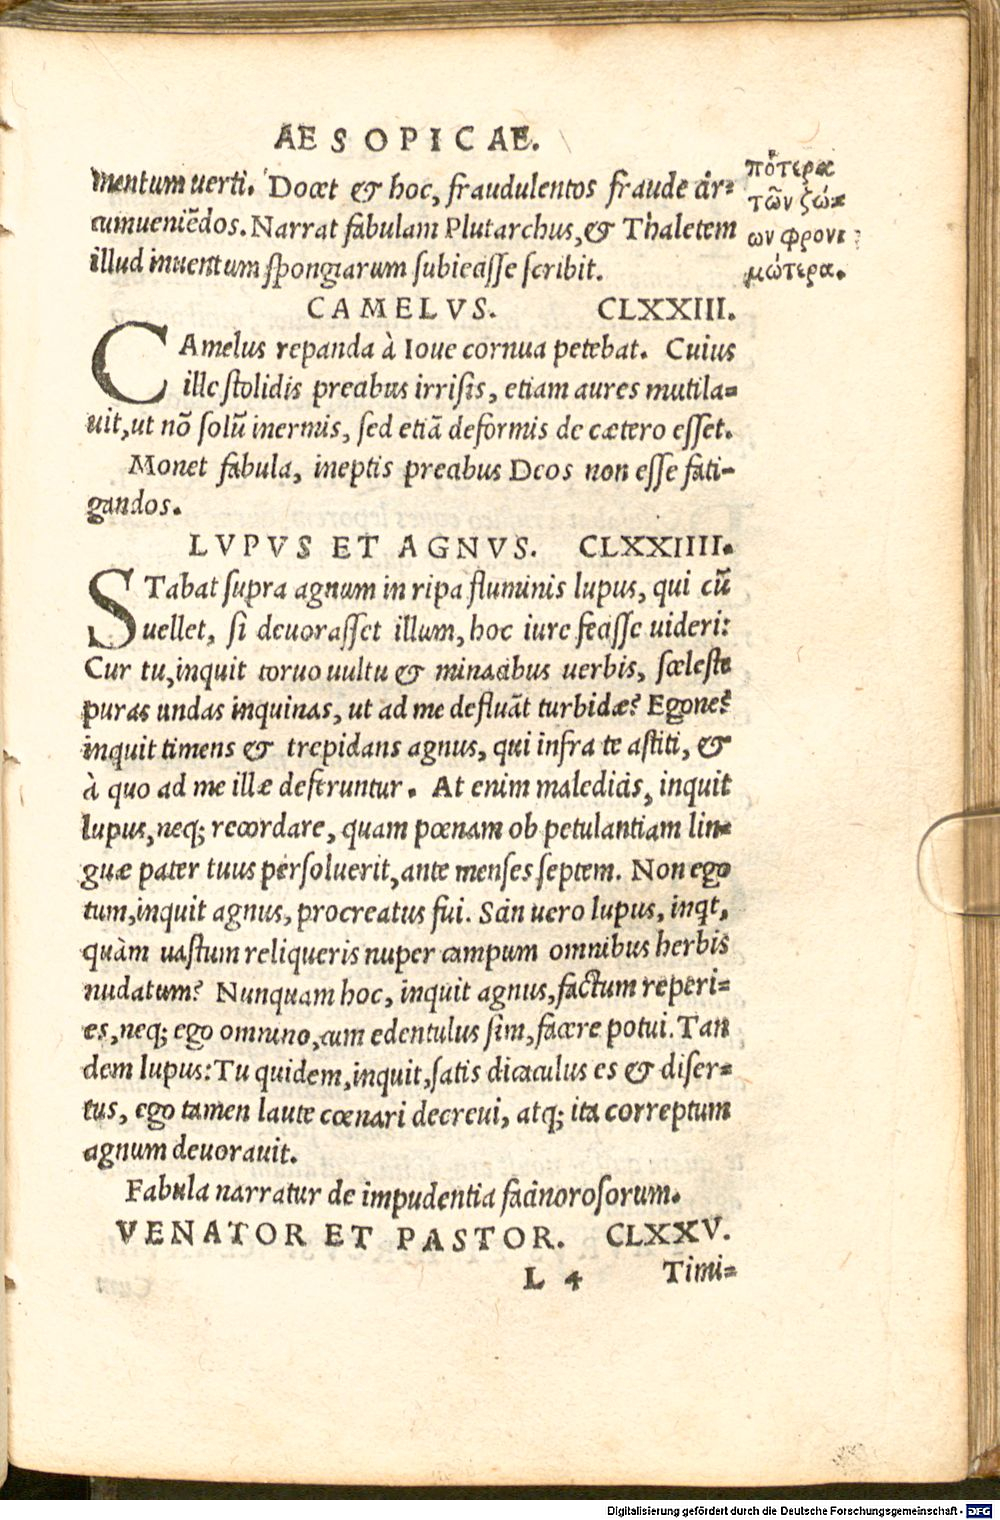 AESOPICAE.
mentum uerti. Docet & hoc, fraudulentos fraude cir=
cumueniẽdos. Narrat fabulam Plutarchus, & Thaletem
illud inuentum spongiarum subiecisse scribit.
πότερα
τῶν ζώ=
ων φρονι
μώτερα.
CAMELVS. CLXXIII.
CAmelus repanda à Ioue cornua petebat. Cuius
ille stolidis precibus irrisis, etiam aures mutila=
uit, ut nõ solũ inermis, sed etiã deformis de cætero esset.
Monet fabula, ineptis precibus Deos non esse fati-
gandos.
LVPVS ET AGNVS. CLXXIIII.
STabat supra agnum in ripa fluminis lupus, qui cũ
uellet, si deuorasset illum, hoc iure fecisse uideri:
Cur tu, inquit toruo uultu & minacibus uerbis, sceleste
puras undas inquinas, ut ad me defluãt turbidæ? Egone?
inquit timens & trepidans agnus, qui infra te astiti, &
à quo ad me illæ deferuntur. At enim maledicis, inquit
lupus, neq; recordare, quam pœnam ob petulantiam lin=
guæ pater tuus persoluerit, ante menses septem. Non ego
tum, inquit agnus, procreatus fui. Scin uero lupus, inqt,
quàm uastum reliqueris nuper campum omnibus herbis
nudatum? Nunquam hoc, inquit agnus, factum reperi-
es, neq; ego omnino, cum edentulus sim, facere potui. Tan
dem lupus: Tu quidem, inquit, satis dicaculus es & diser=
tus, ego tamen laute cœnari decreui, atq; ita correptum
agnum deuorauit.
Fabula narratur de impudentia facinorosorum.
VENATOR ET PASTOR. CLXXV.
L 4 Timi=
Digitalisierung gefördert durch die Deutsche Forschungsgemeinschaft - DFG